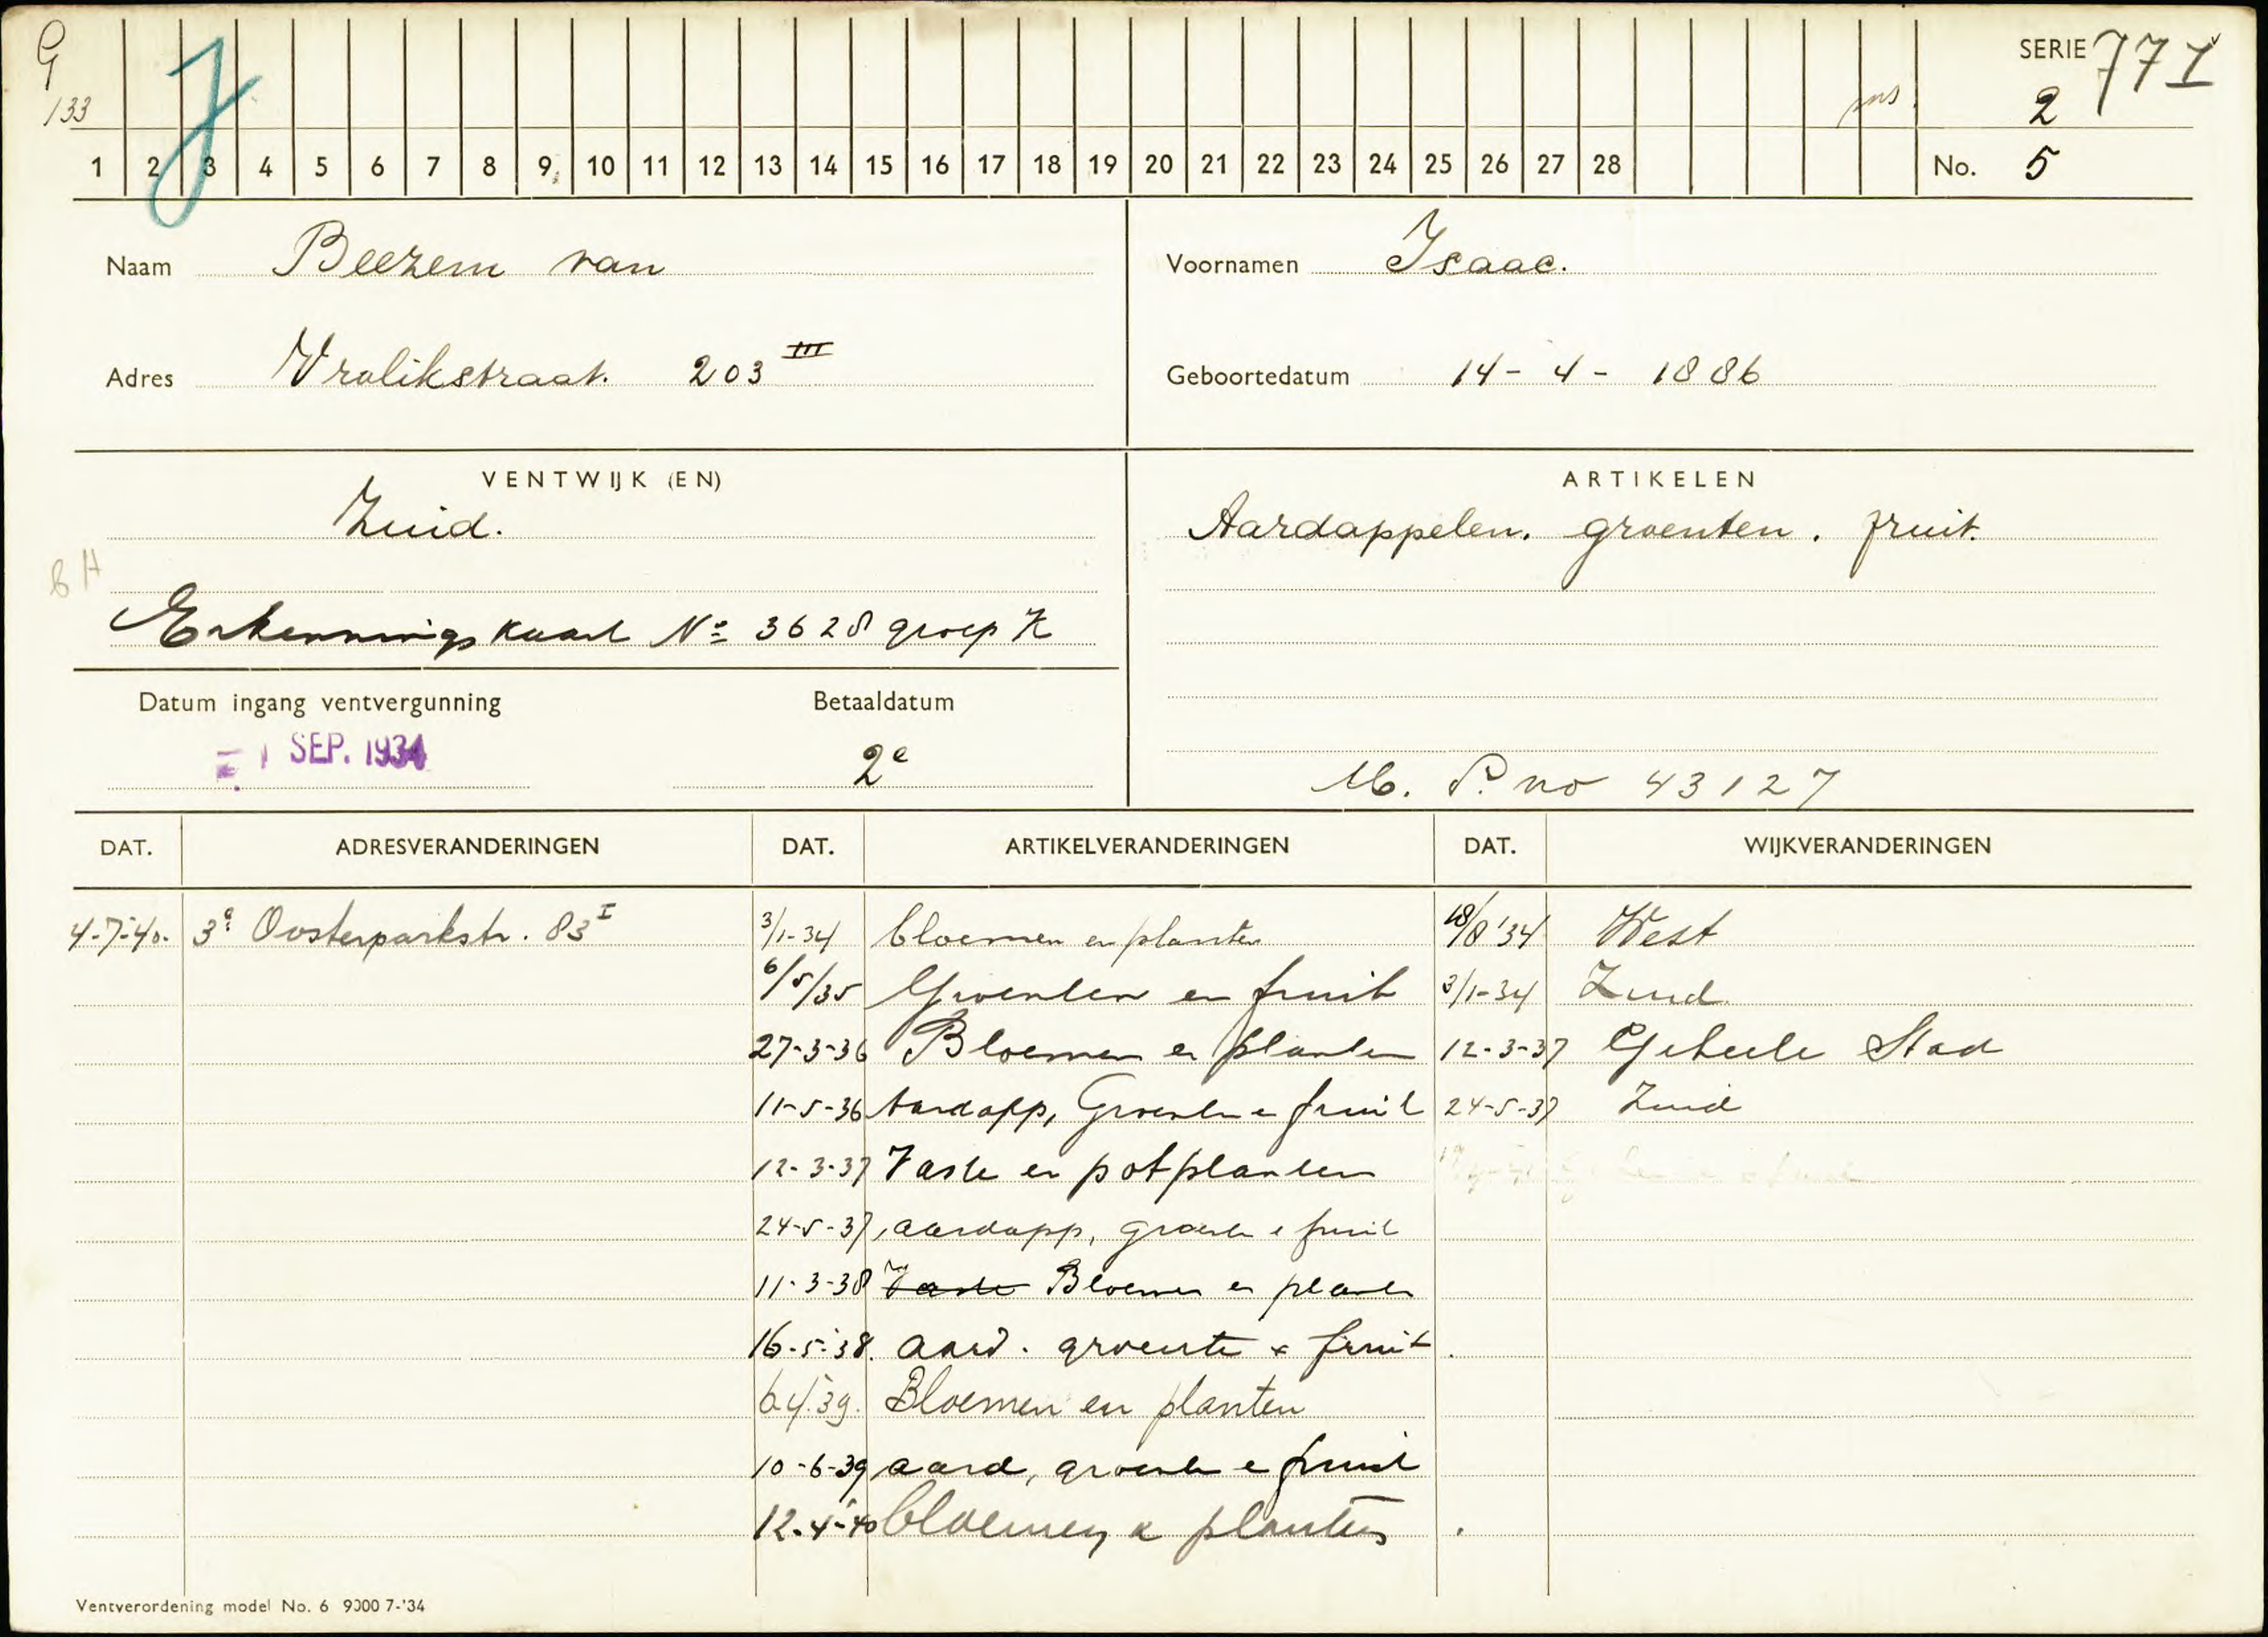 G
J
SERIE 771
133
2
1 2 3 4 5 6 7 8 9 10 11 12 13 14 15 16 17 18 19 20 21 22 23 24 25 26 27 28
No. 5
Naam Beezem van
Voornamen Isaac.
Adres Vrolikstraat. 203 III
Geboortedatum 14-4-1886
VENTWIJK (EN)
Zuid.
BH
Erkenningskaart No 3628 groep K
ARTIKELEN
Aardappelen. groenten. fruit.
Datum ingang ventvergunning
Betaaldatum
= 1 SEP. 1934
2e
M. P. no 43127
DAT. ADRESVERANDERINGEN DAT. ARTIKELVERANDERINGEN DAT. WIJKVERANDERINGEN
4-7-40. 3e Oosterparkstr. 83 I 3/1-34 bloemen en planten 18/8 '34 West
6/5/35 Groenten en fruit 3/1-34 Zuid
27-3-36 Bloemen en planten 12-3-37 Geheele Stad
11-5-36 Aardapp, Groenten e fruit 24-5-37 Zuid
12-3-37 Vaste en potplanten
24-5-37 aardapp, groenten e fruit
11-3-38 Vaste Bloemen en planten
16-5-38. aard. groente & fruit.
6.4.39. Bloemen en planten
10-6-39 aard, groenten e fruit
12-4-40 bloemen & planten
Ventverordening model No. 6 9000 7-'34